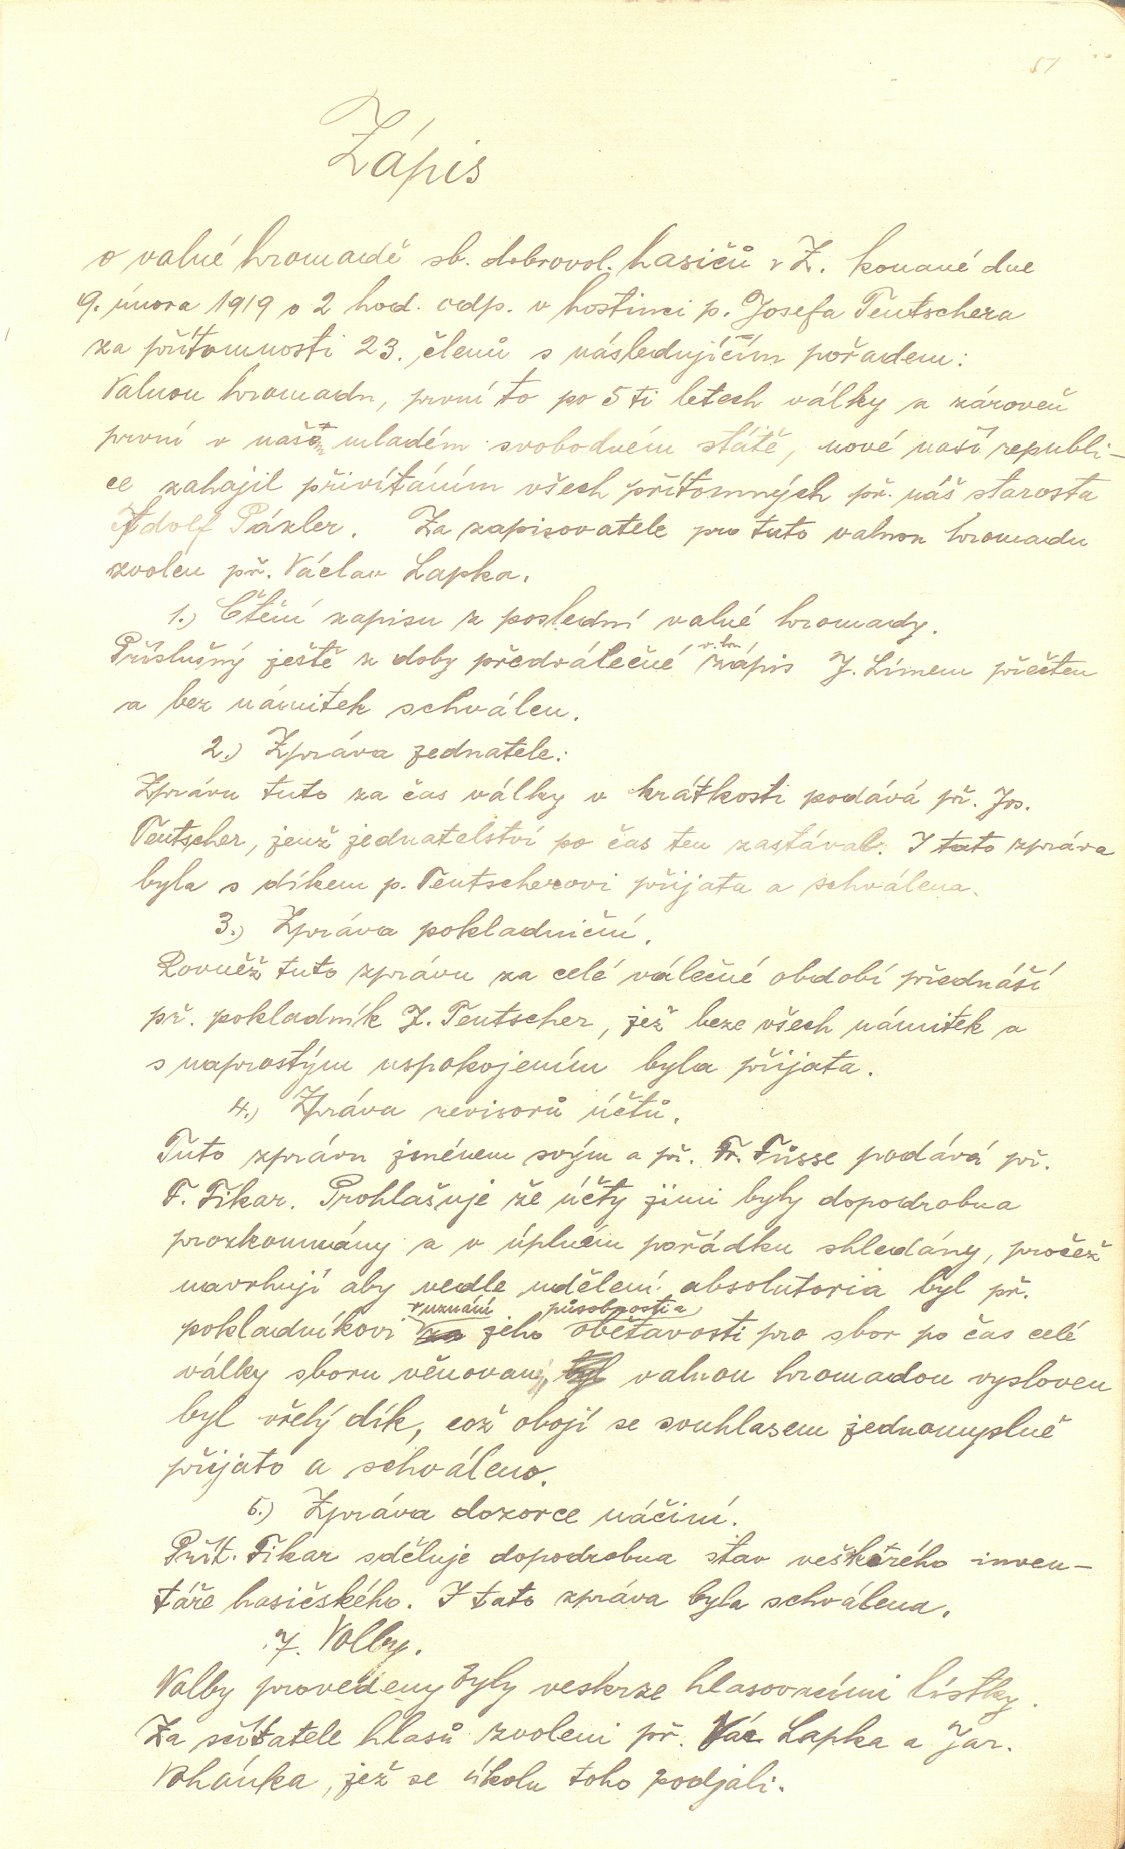 51
Zápis
o valné hromadě sb. dobrovol. hasičů v Z. konané dne
9. února 1919 o 2 hod. odp. v hostinci p. Josefa Teutschera
za přítomnosti 23. členů s následujícím pořadem:
Valnou hromadu, první to po 5 ti letech války a zároveň
první v našem mladém svobodném státě, nové naší republi-
ce zahájil přivítáním všech přítomných př. náš starosta
Adolf Pázler. Za zapisovatele pro tuto valnou hromadu
zvolen př. Václav Lapka.
1.) Čtení zapisu z poslední valné hromady.
Příslušný ještě z doby předválečné zápis J. Límem přečten
a bez námitek schválen.
2.) Zpráva jednatele:
Zprávu tuto za čas války v krátkosti podává př. Jos.
Teutscher, jenž jednatelství po čas ten zastával. I tato zpráva
byla s díkem p. Teutscherovi přijata a schválena.
3.) Zpráva pokladniční.
Rovněž tuto zprávu za celé válečné období přednáší
př. pokladník J. Teutscher, jež beze všech námitek a
s naprostým uspokojením byla přijata.
4.) Zpráva revisorů účtů.
Tuto zprávu jménem svým a př. Fr. Füsse podává př.
F. Fikar. Prohlašuje že účty jimi byly dopodrobna
prozkoumány a v úplném pořádku shledány, pročež
navrhují aby vedle udělení absolutoria byl př.
pokladníkovi v uznání jeho působnosti a obětavosti pro sbor po čas celé
války sboru věnované, valnou hromadou vysloven
byl vřelý dík, což obojí se souhlasem jednomyslně
přijato a schváleno.
5.) Zpráva dozorce náčiní.
Přít. Fikar sděluje dopodrobna stav veškerého inven-
táře hasičského. I tato zpráva byla schválena.
7. Volby.
Volby provedeny byly veskrze hlasovacími lístky.
Za sčítatele hlasů zvoleni př. Vác Lapka a Jar.
Vohánka, jež se úkolu toho podjali.